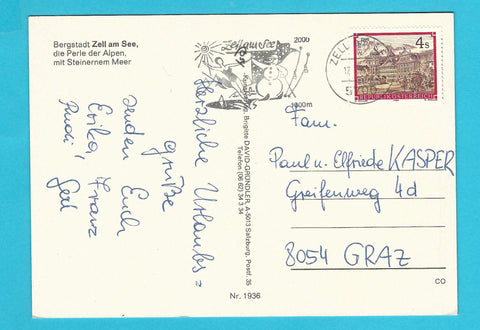 Bergstadt Zell am See,
die Perle der Alpen,
mit Steinernem Meer
Herzliche Urlaubs=
grüße
senden Euch
Erika Franz
Rudi Gerl
Brigitte DAVID-GRÜNDLER, A-5013 Salzburg, Postf. 35
Telefon (06 62) 34 3 34
Nr. 1936
Zell am See
2000
1000m
ZELL
5700
4 s
REPUBLIK ÖSTERREICH
Fam.
Paul u. Elfriede KASPER
Greifenweg 4d
8054 GRAZ
CO